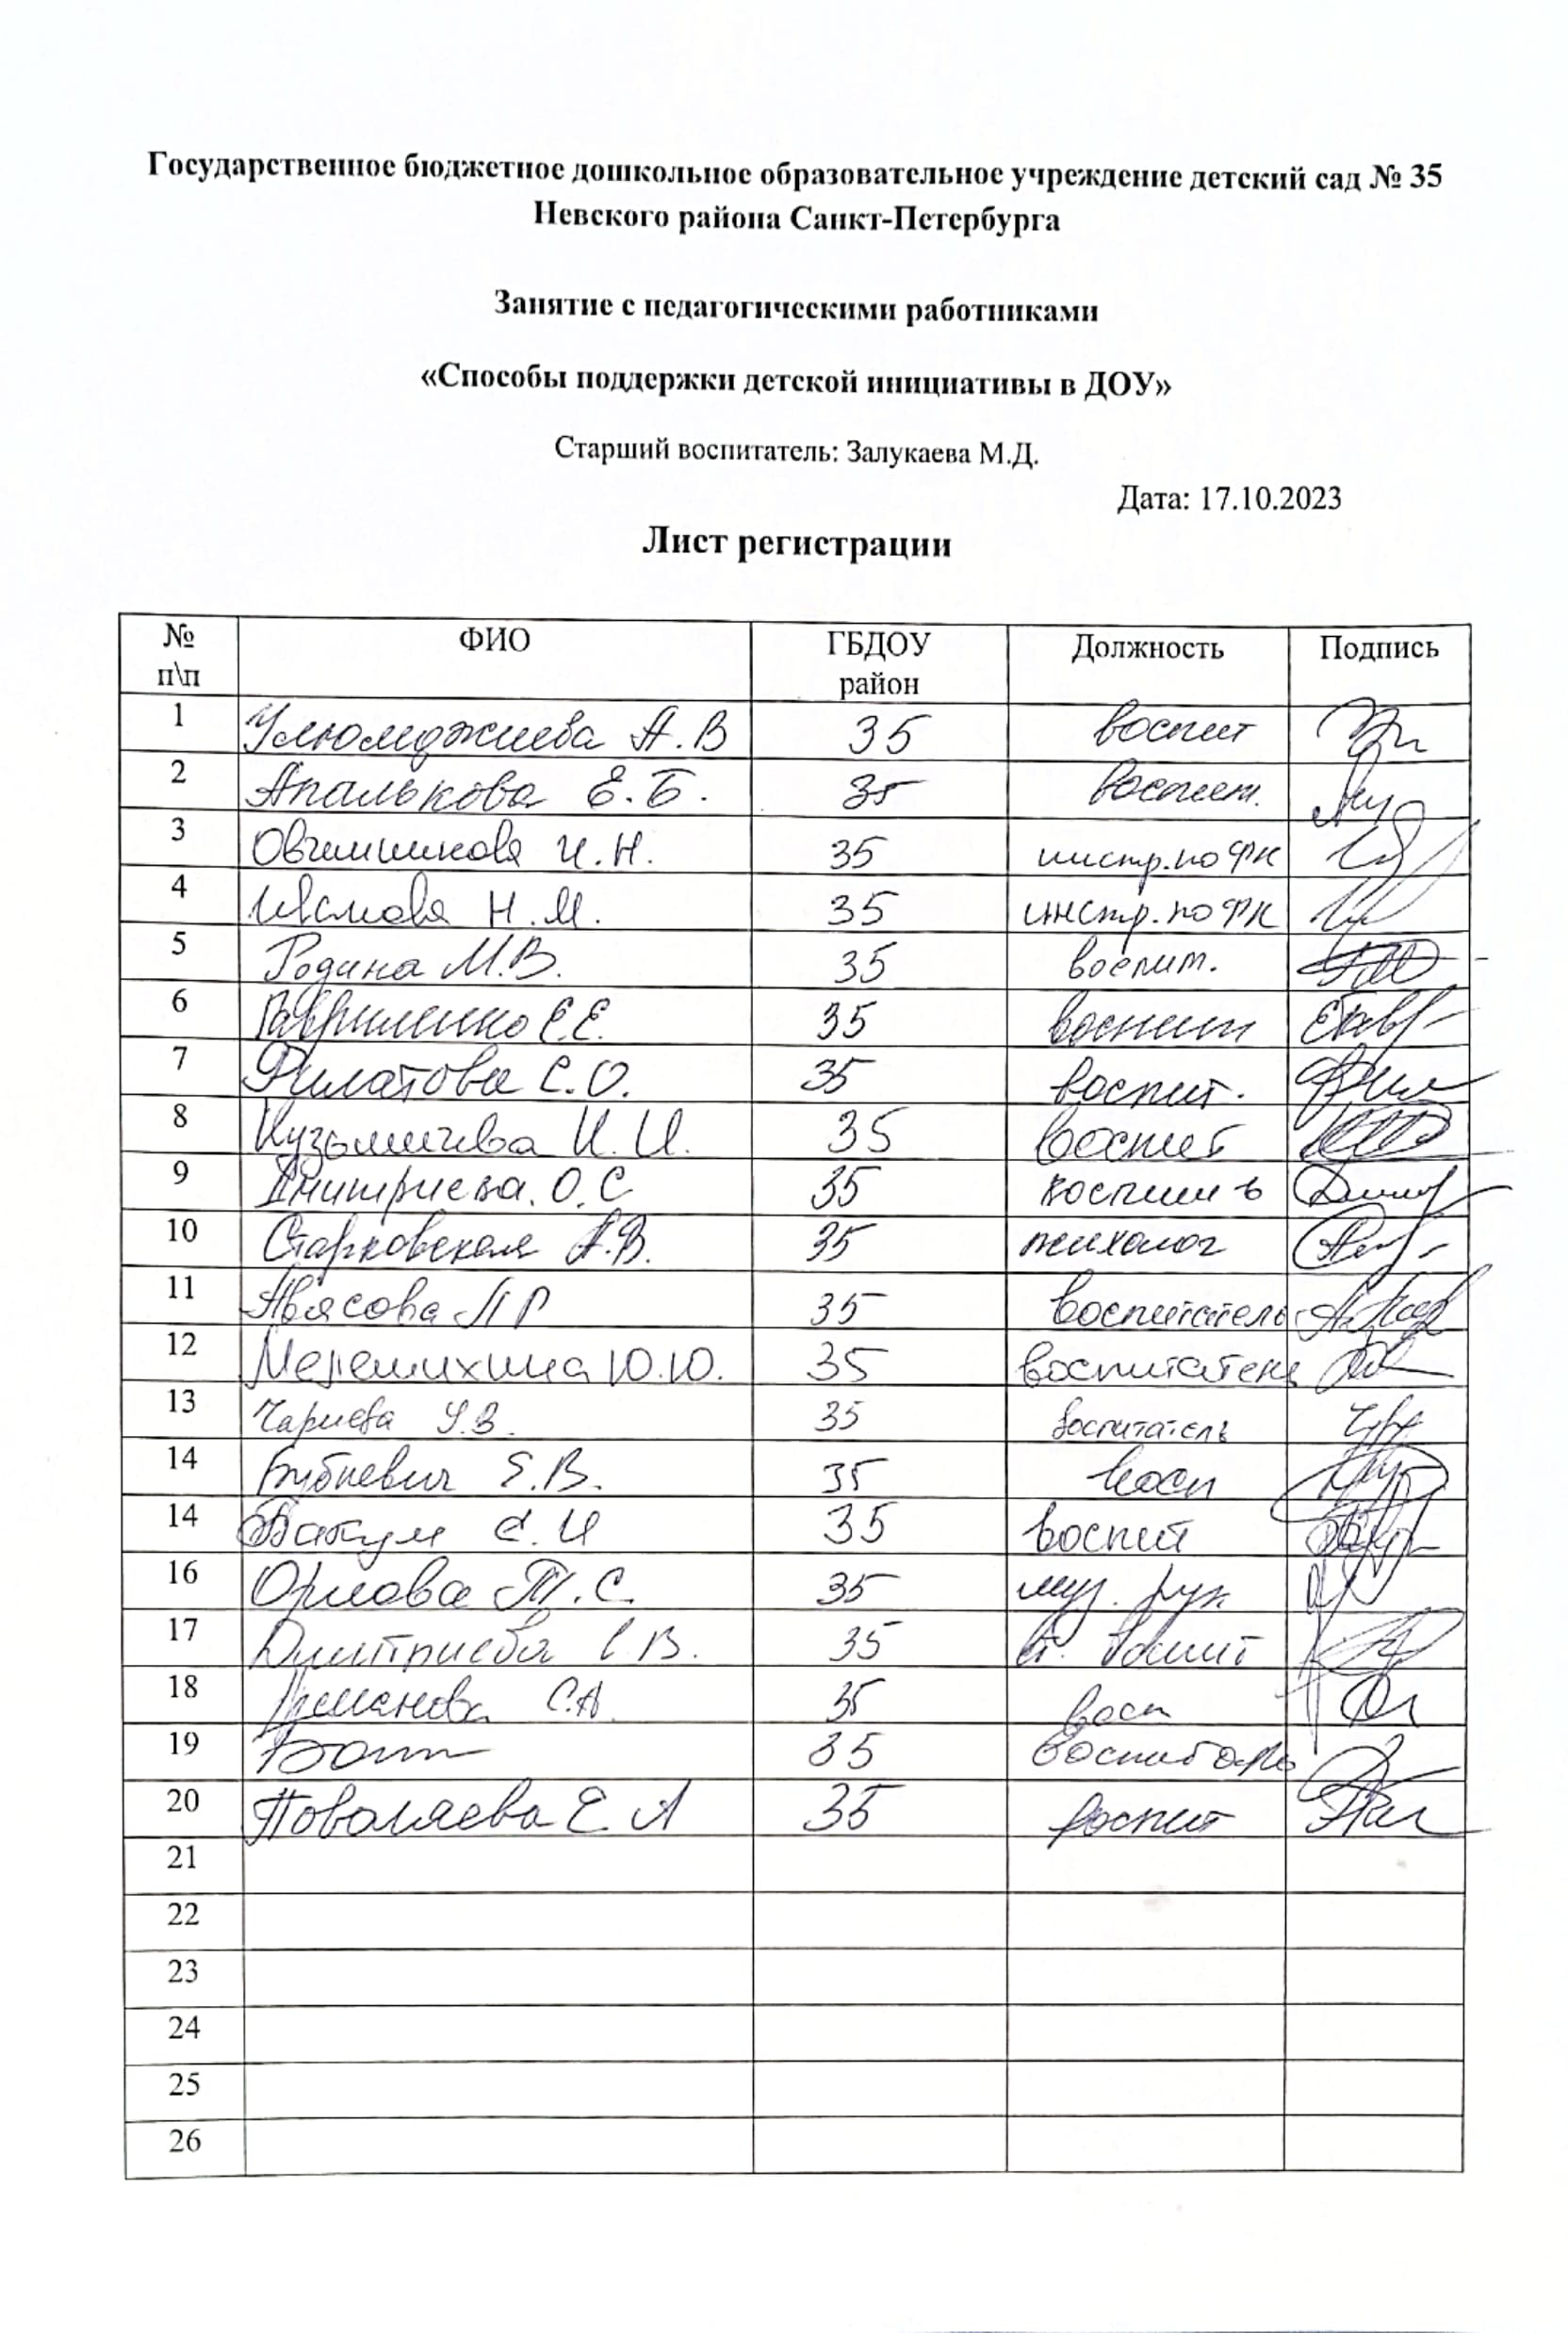 Государственное бюджетное дошкольное образовательное учреждение детский сад № 35
Невского района Санкт-Петербурга
Занятие с педагогическими работниками
«Способы поддержки детской инициативы в ДОУ»
Старший воспитатель: Залукаева М.Д.
Дата: 17.10.2023
Лист регистрации
№ п\п ФИО ГБДОУ район Должность Подпись
1 Улюмджиева А.В 35 воспит
2 Апалькова Е.Б. 35 воспит.
3 Овчинникова И.Н. 35 инстр.по ФК
4 Н.М. 35 инстр.по ФК
5 Родина М.В. 35 воспит.
6 Гавриленко Е.Е. 35 воспит
7 Филатова С.О. 35 воспит.
8 Кузьмичева И.И. 35 воспит
9 Дмитриева.О.С 35
10 Старковская А.В. 35 психолог
11 Авясова 35 воспитатель
12 Мелешихина Ю.Ю. 35 воспитатель
13 Чариева У.З. 35 воспитатель
14 Бубневич Е.В. 35 восп
14 Бакум 35 воспит
16 Орлова Т.С. 35 муз. рук
17 Дмитриева В. 35 ст.
18 С.А. 35 восп
19 35
20 Поваляева Е.А 35 воспит
21
22
23
24
25
26